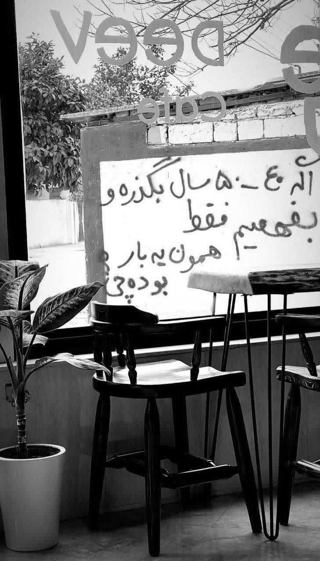 DeeV
Cafe
اگه ۴۰-۵۰ سال بگذره و
بفهمیم فقط
همون یه بار
بوده چی